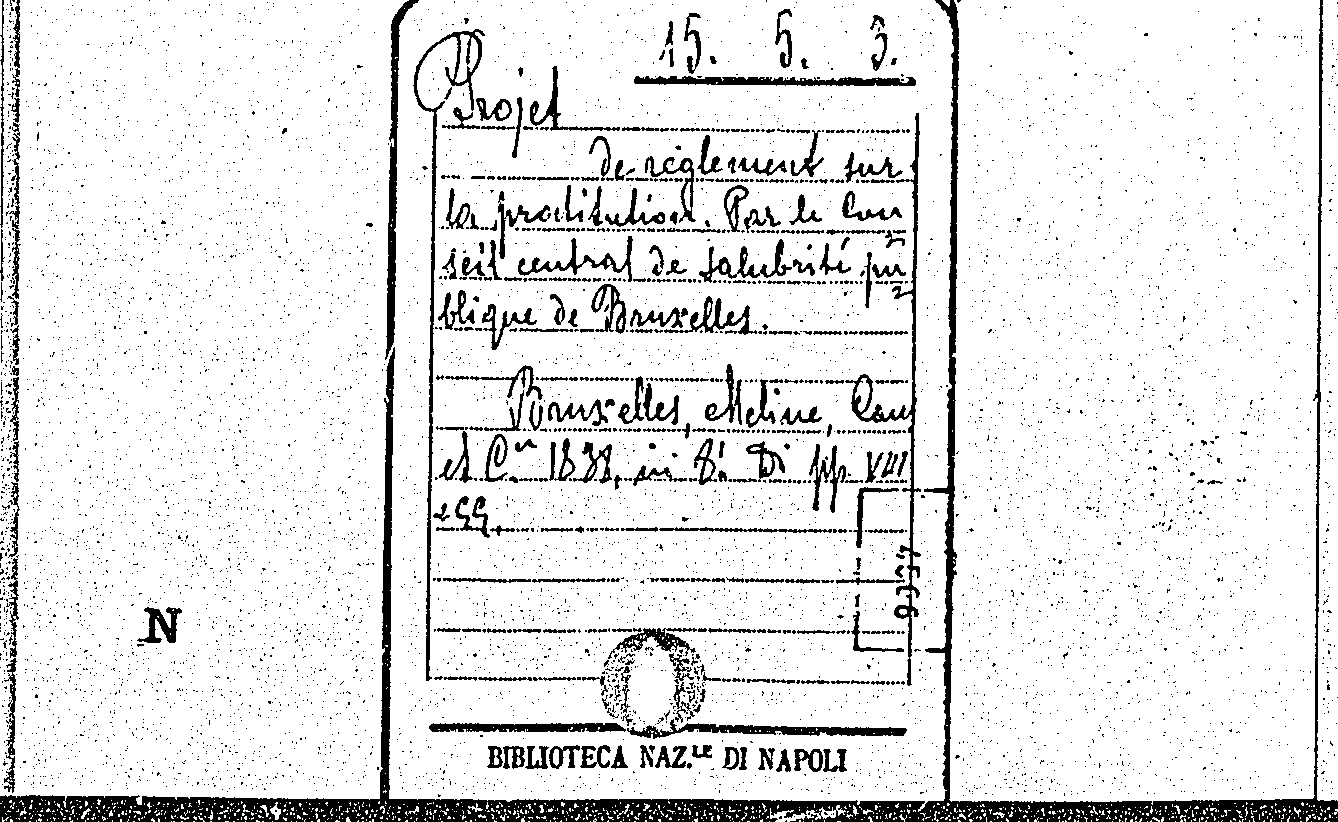 15. 5. 3.
Projet
de règlement sur
la prostitution. Par le Con
seil central de salubrité pu
blique de Bruxelles.
Bruxelles, Meline, Cans
et C.ie 1838, in 8.º Di pp. VIII
N
BIBLIOTECA NAZ.LE DI NAPOLI